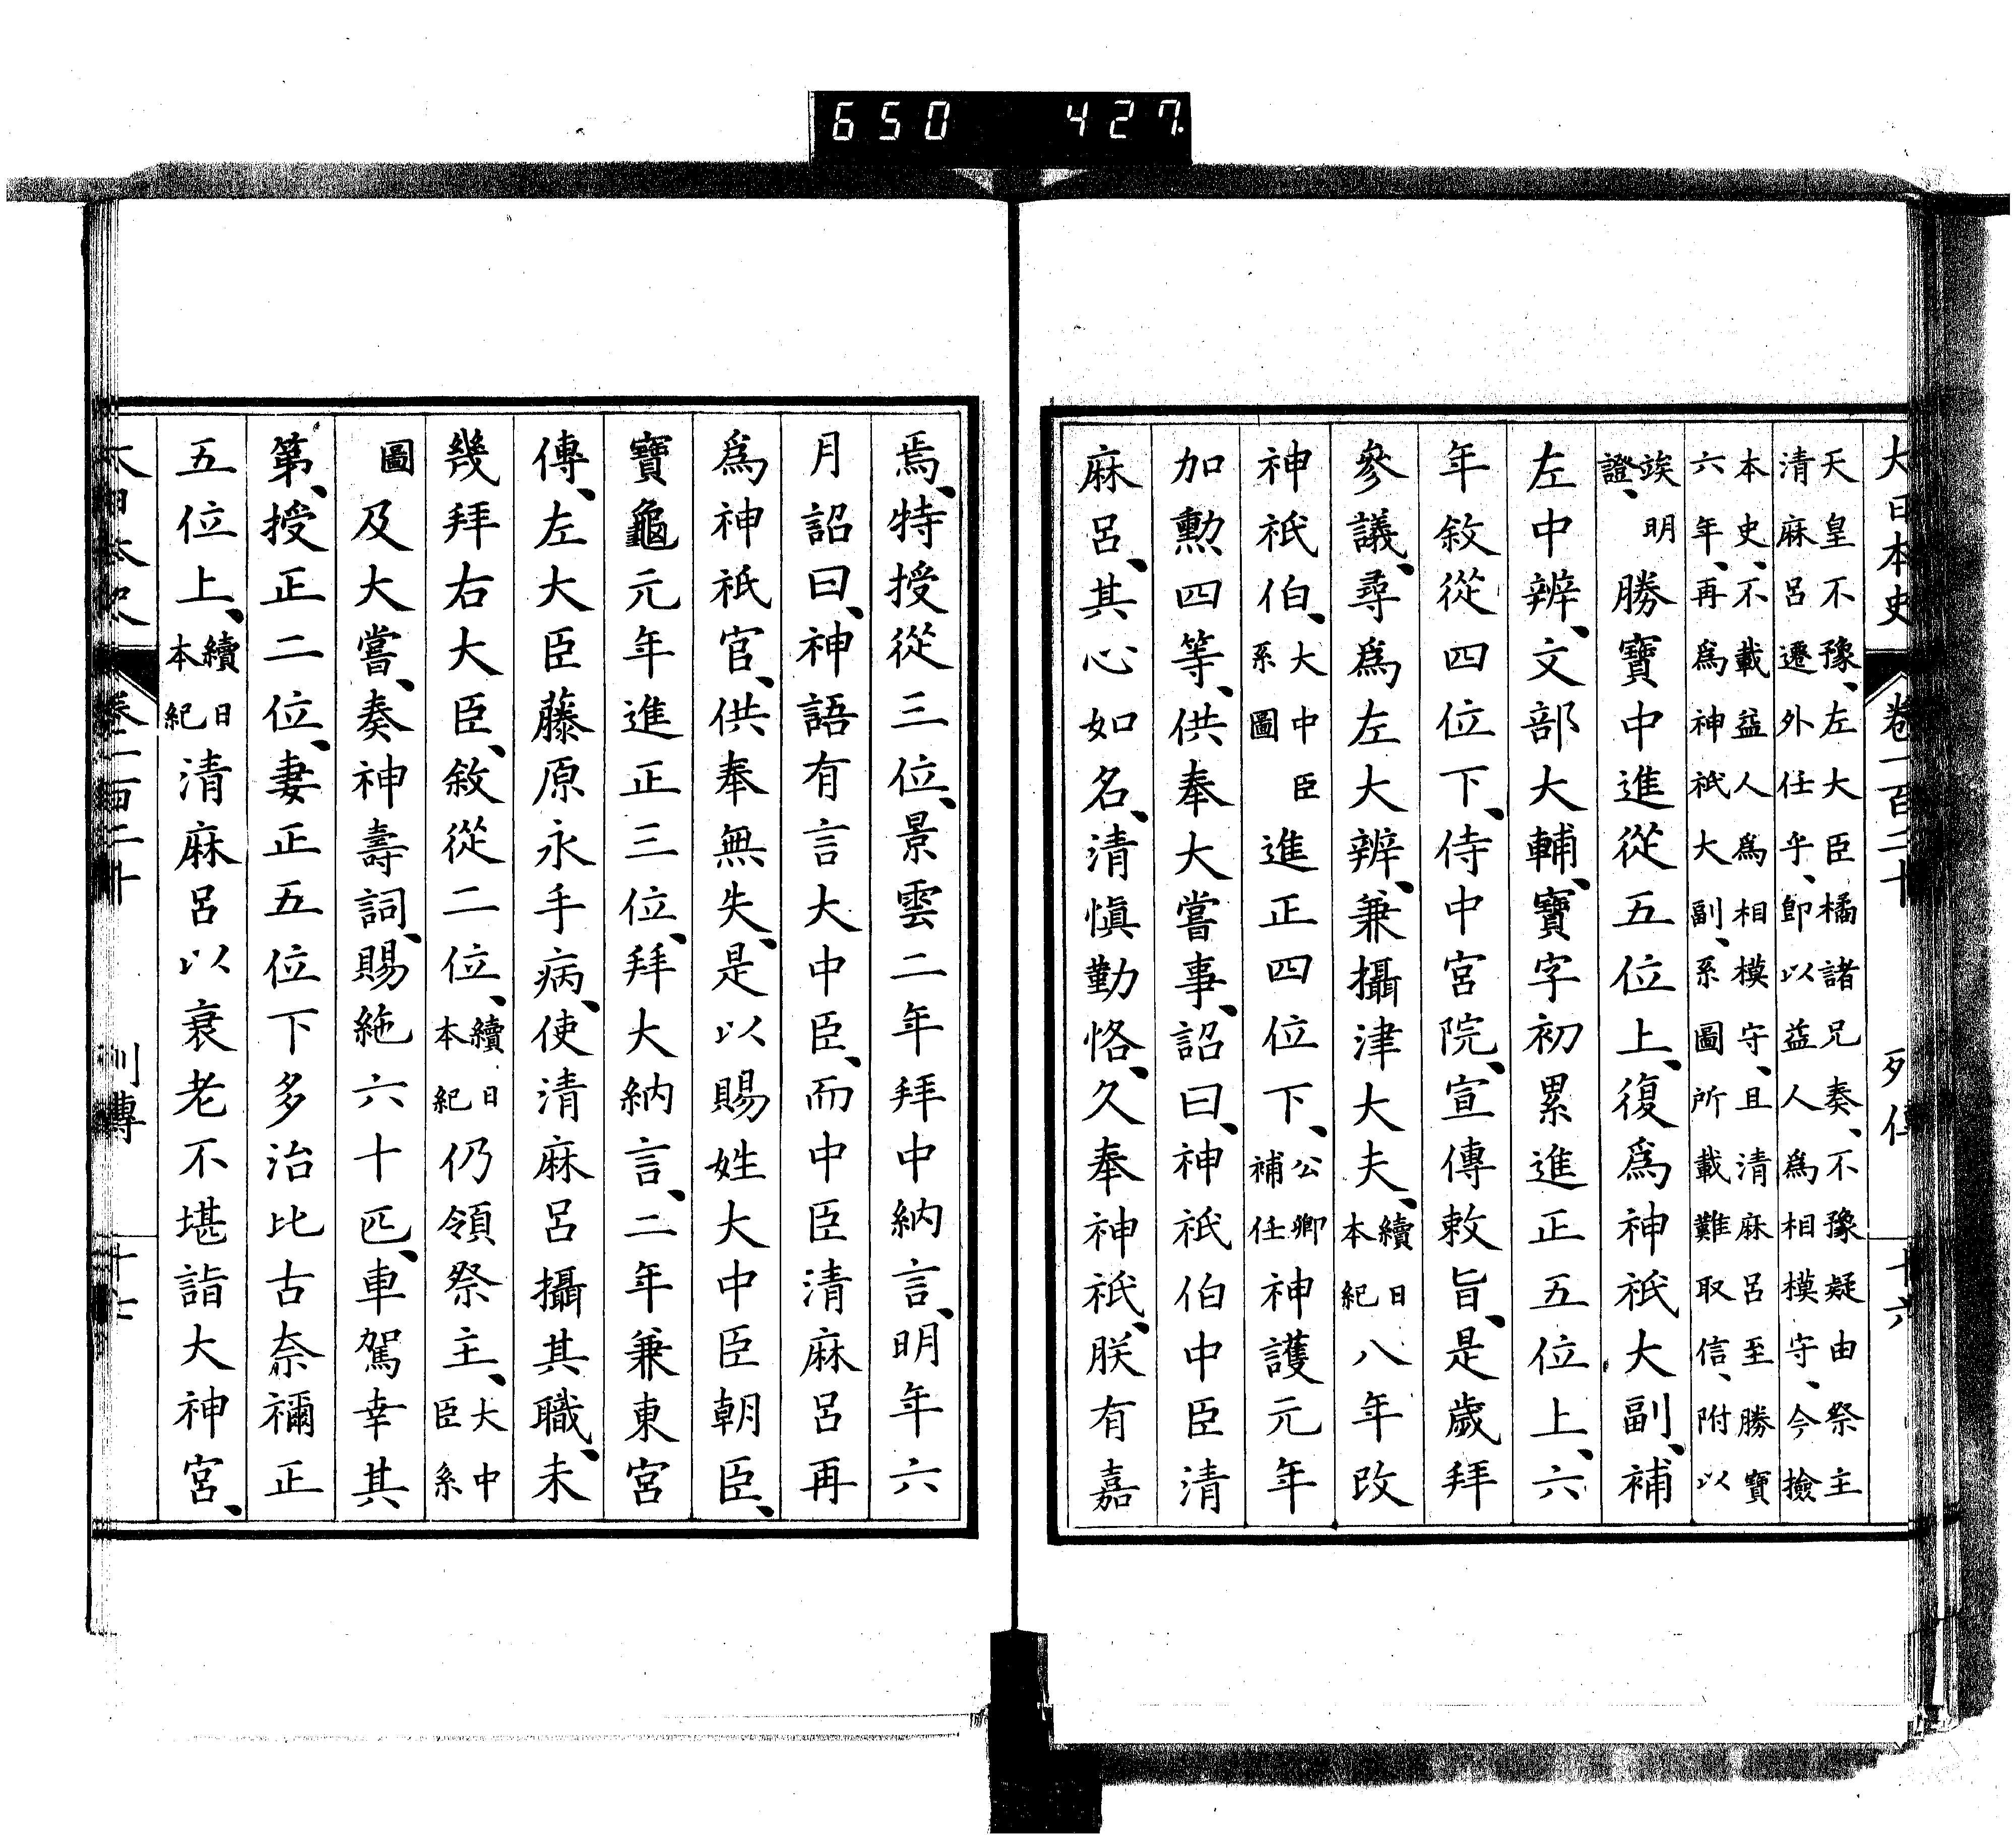 大日本史 卷一百二十 列傳 十六
天皇不豫、左大臣橘諸兄奏、不豫疑由祭主
清麻呂遷外任乎、卽以益人爲相模守、今撿
本史、不載益人爲相模守、且清麻呂至勝寶
六年、再爲神祇大副、系圖所載難取信、附以
竢明證、勝寶中進從五位上、復爲神祇大副、補
左中辨、文部大輔、寶字初累進正五位上、六
年敘從四位下、侍中宮院、宣傳敕旨、是歲拜
參議、尋爲左大辨、兼攝津大夫、續日本紀八年改
神祇伯、大中臣系圖進正四位下、公卿補任神護元年
加勳四等、供奉大嘗事、詔曰、神祇伯中臣清
麻呂、其心如名、清愼勤恪、久奉神祇、朕有嘉
焉、特授從三位、景雲二年拜中納言、明年六
月詔曰、神語有言大中臣、而中臣清麻呂再
爲神祇官、供奉無失、是以賜姓大中臣朝臣、
寶龜元年進正三位、拜大納言、二年兼東宮
傳、左大臣藤原永手病、使清麻呂攝其職、未
幾拜右大臣、敘從二位、續日本紀仍領祭主、大中臣系
圖及大嘗、奏神壽詞、賜絁六十匹、車駕幸其
第、授正二位、妻正五位下多治比古奈禰正
五位上、續日本紀清麻呂以衰老不堪詣大神宮、
大日本史 卷一百二十 列傳 十七
650 427